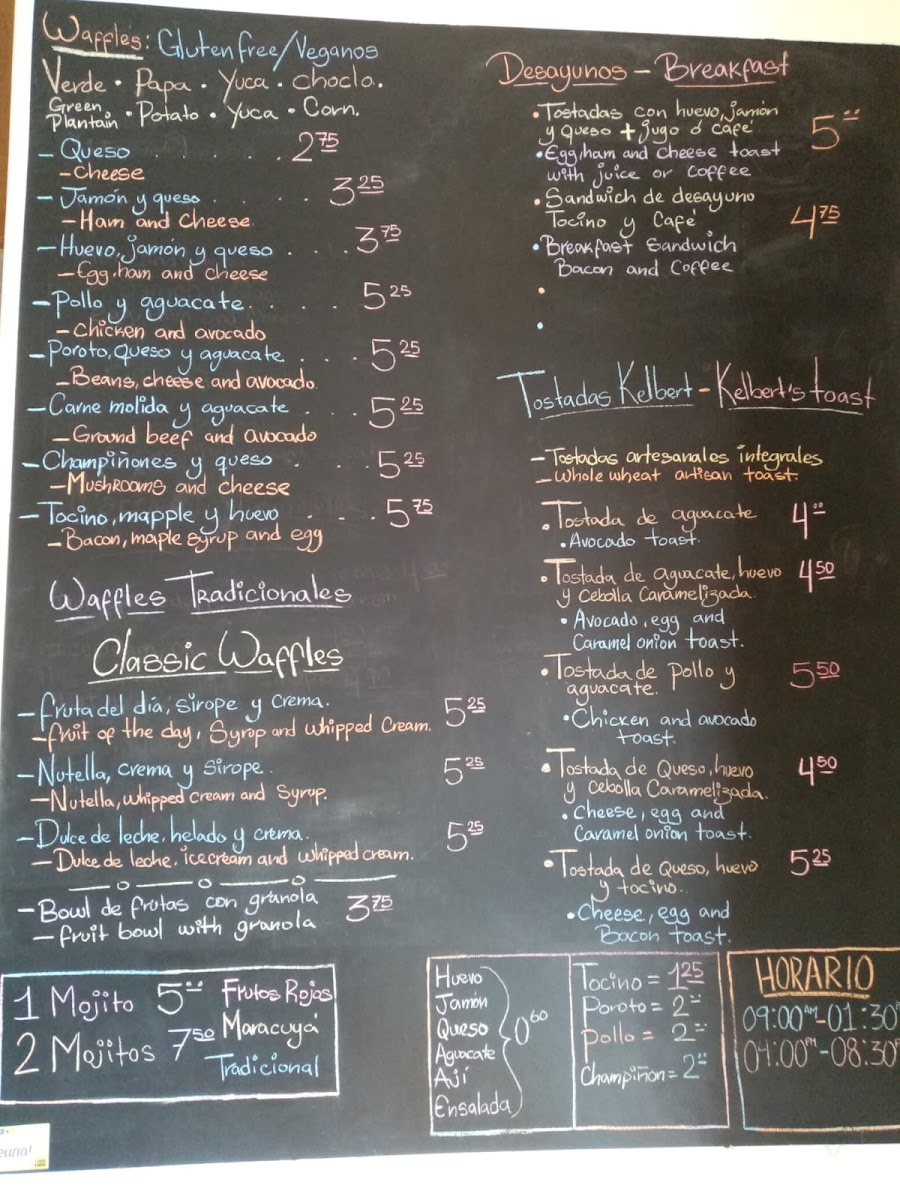 Waffles: Gluten free/Veganos
Verde • Papa • Yuca • Choclo.
Green Plantain • Potato • Yuca • Corn.
– Queso . . . . . . 2 75
– Cheese
– Jamón y queso . . . . . 3 25
– Ham and Cheese.
– Huevo, jamón y queso . . . . 3 75
– Egg, ham and cheese
– Pollo y aguacate . . . . 5 25
– Chicken and avocado
– Poroto, queso y aguacate . . . 5 25
– Beans, cheese and avocado.
– Carne molida y aguacate . . . 5 25
– Ground beef and avocado
– Champiñones y queso . . . 5 25
– Mushrooms and cheese
– Tocino, mapple y huevo . . . 5 75
– Bacon, maple syrup and egg
Waffles Tradicionales
Classic Waffles
– Fruta del día, sirope y crema. 5 25
– Fruit of the day, Syrup and whipped Cream.
– Nutella, crema y sirope. 5 25
– Nutella, whipped cream and Syrup.
– Dulce de leche, helado y crema. 5 25
– Dulce de leche, icecream and whipped cream.
– Bowl de frutas con granola 3 75
– Fruit bowl with granola
1 Mojito 5 00 Frutos Rojos
Maracuyá
2 Mojitos 7 50
Tradicional
Desayunos – Breakfast
• Tostadas con huevo, jamón
y queso + jugo ó café 5 00
• Egg, ham and cheese toast
with juice or coffee
• Sandwich de desayuno
Tocino y Café 4 75
• Breakfast Sandwich
Bacon and Coffee
Tostadas Kelbert – Kelbert's toast
– Tostadas artesanales integrales
– Whole wheat artisan toast.
• Tostada de aguacate 4 00
• Avocado toast.
• Tostada de aguacate, huevo 4 50
y Cebolla Caramelizada.
• Avocado, egg and
Caramel onion toast.
• Tostada de pollo y 5 50
aguacate.
• Chicken and avocado
toast.
• Tostada de Queso, huevo 4 50
y cebolla Caramelizada.
• Cheese, egg and
Caramel onion toast.
• Tostada de Queso, huevo 5 25
y tocino.
• Cheese, egg and
Bacon toast.
Huevo
Jamón
Queso 0 60
Aguacate
Ají
Ensalada
Tocino = 1 25
Poroto = 2 00
Pollo = 2 00
Champiñon = 2 00
HORARIO
09:00 AM - 01:30
04:00 PM - 08:30